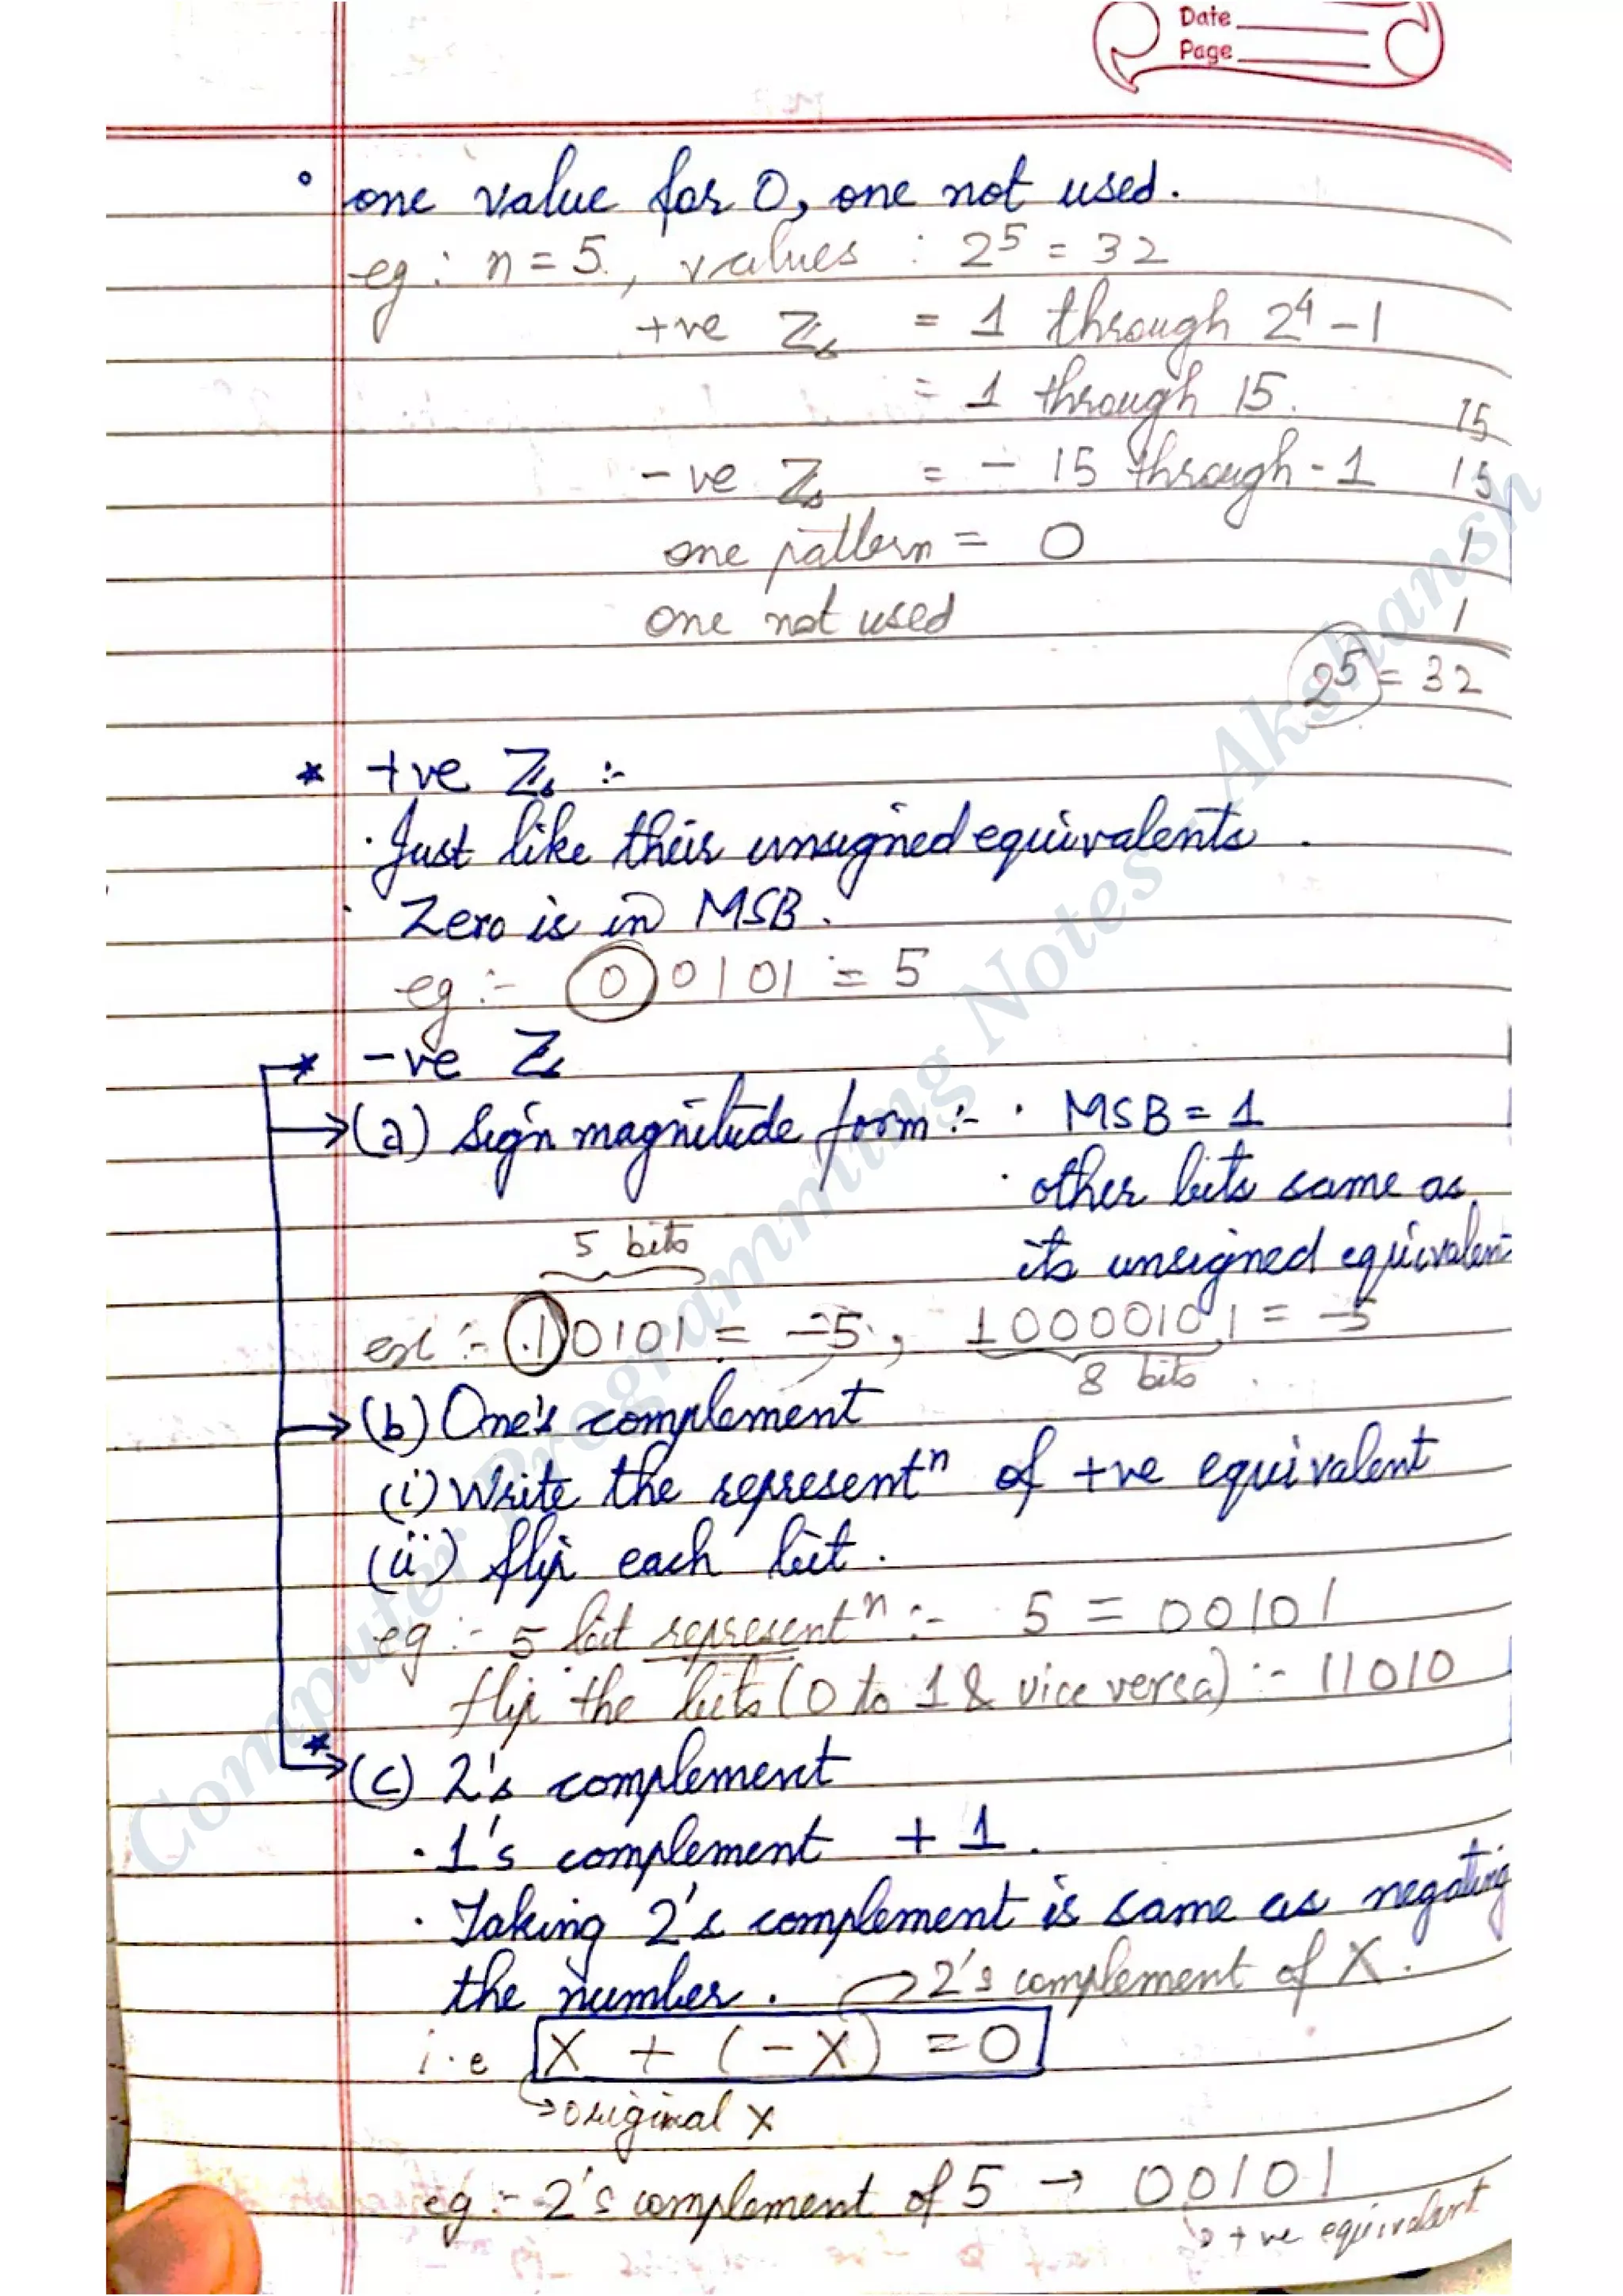 Date
Page
° one value for 0, one not used.
eg: n = 5, values : 2⁵ = 32
+ve Zs = 1 through 2⁴ - 1
= 1 through 15. 15
-ve Zs = - 15 through - 1 15
one pattern = 0 1
one not used 1
2⁵ = 32
* +ve Zs :-
· Just like their unsigned equivalents.
· Zero is in MSB.
eg :- 00101 = 5
* -ve Zs
→ (a) Sign magnitude form :- · MSB = 1
· other bits same as
its unsigned equivalent
5 bits
ex :- 10101 = -5, 10000101 = -5
8 bits
→ (b) One's complement
(i) Write the representⁿ of +ve equivalent
(ii) flip each bit.
eg :- 5 bit representⁿ :- 5 = 00101
flip the bits (0 to 1 & vice versa) :- 11010
* → (c) 2's complement
· 1's complement + 1.
· Taking 2's complement is same as negating
the number. → 2's complement of X.
i.e X + (-X) = 0
→ original X
eg :- 2's complement of 5 → 00101
→ +ve equivalent
Computer Programming Notes - Akshansh